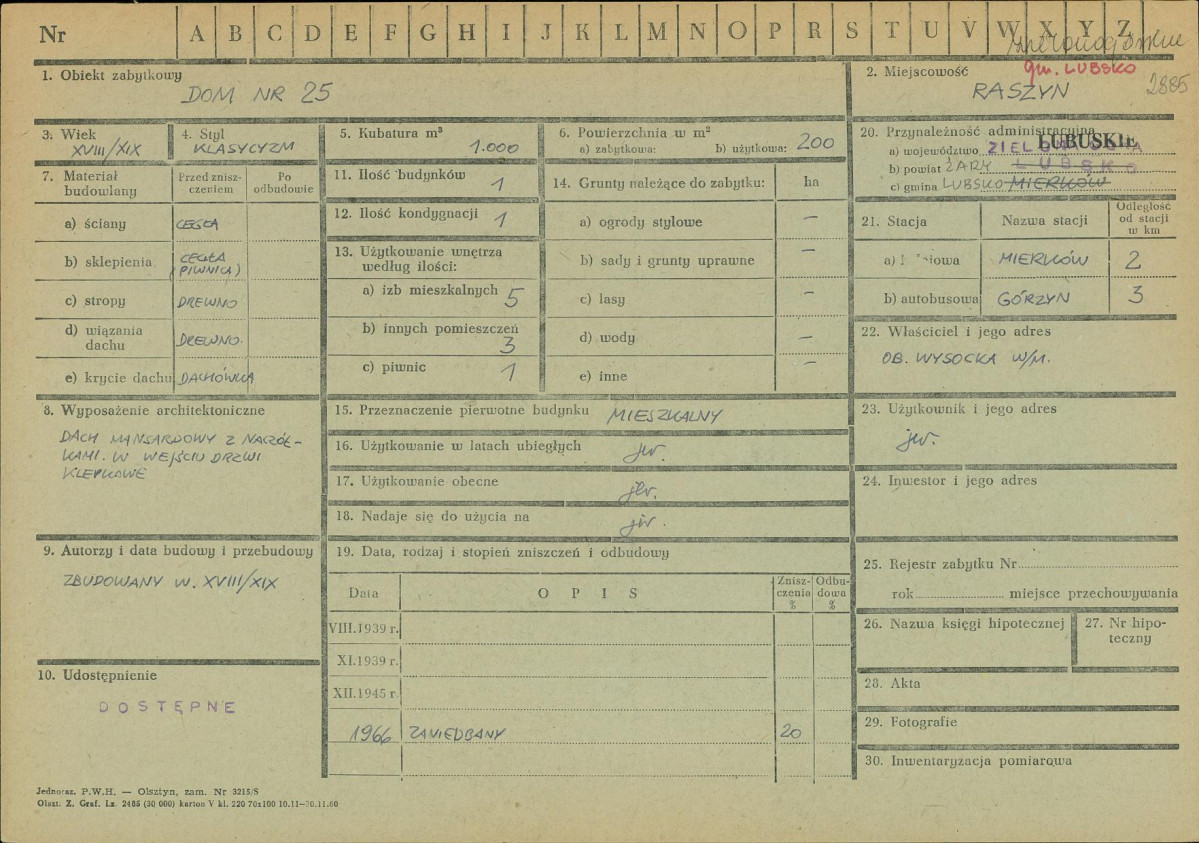 Nr A B C D E F G H I J K L M N O P R S T U V W X Y Z
1. Obiekt zabytkowy
DOM NR 25
2. Miejscowość
gm. LUBSKO
RASZYN
2885
3. Wiek
XVIII/XIX
4. Styl
KLASYCYZM
5. Kubatura m³
1.000
6. Powierzchnia w m²
a) zabytkowa: b) użytkowa: 200
20. Przynależność administracyjna
LUBUSKIE
a) województwo ZIELONA GÓRA
b) powiat ŻARY LUBSKO
c) gmina LUBSKO MIERKÓW
7. Materiał budowlany
Przed znisz-
czeniem
Po
odbudowie
a) ściany CEGŁA
b) sklepienia CEGŁA
(PIWNICA)
c) stropy DREWNO
d) wiązania
dachu DREWNO.
e) krycie dachu DACHÓWKA
11. Ilość budynków 1
12. Ilość kondygnacji 1
13. Użytkowanie wnętrza
według ilości:
a) izb mieszkalnych 5
b) innych pomieszczeń
3
c) piwnic 1
14. Grunty należące do zabytku: ha
a) ogrody stylowe –
b) sady i grunty uprawne –
c) lasy –
d) wody –
e) inne –
21. Stacja Nazwa stacji
Odległość
od stacji
w km
a) MIERKÓW 2
b) autobusowa GÓRZYN 3
22. Właściciel i jego adres
OB. WYSOCKA W/M.
8. Wyposażenie architektoniczne
DACH MANSARDOWY Z NACZÓŁ-
KAMI. W WEJŚCIU DRZWI
KLEPKOWE
15. Przeznaczenie pierwotne budynku MIESZKALNY
16. Użytkowanie w latach ubiegłych jw.
17. Użytkowanie obecne jw.
18. Nadaje się do użycia na jw.
23. Użytkownik i jego adres
jw.
24. Inwestor i jego adres
9. Autorzy i data budowy i przebudowy
ZBUDOWANY W. XVIII/XIX
19. Data, rodzaj i stopień zniszczeń i odbudowy
Data OPIS
Znisz-
czenia
%
Odbu-
dowa
%
VIII.1939 r.
XI.1939 r.
XII.1945 r.
1966 ZANIEDBANY 20
25. Rejestr zabytku Nr
rok miejsce przechowywania
26. Nazwa księgi hipotecznej
27. Nr hipo-
teczny
10. Udostępnienie
DOSTĘPNE
28. Akta
29. Fotografie
30. Inwentaryzacja pomiarowa
Jednoraz. P.W.H. — Olsztyn, zam. Nr 3215/S
Olszt. Z. Graf. Lz. 2485 (30 000) karton V kl. 220 70x100 10.11–30.11.60